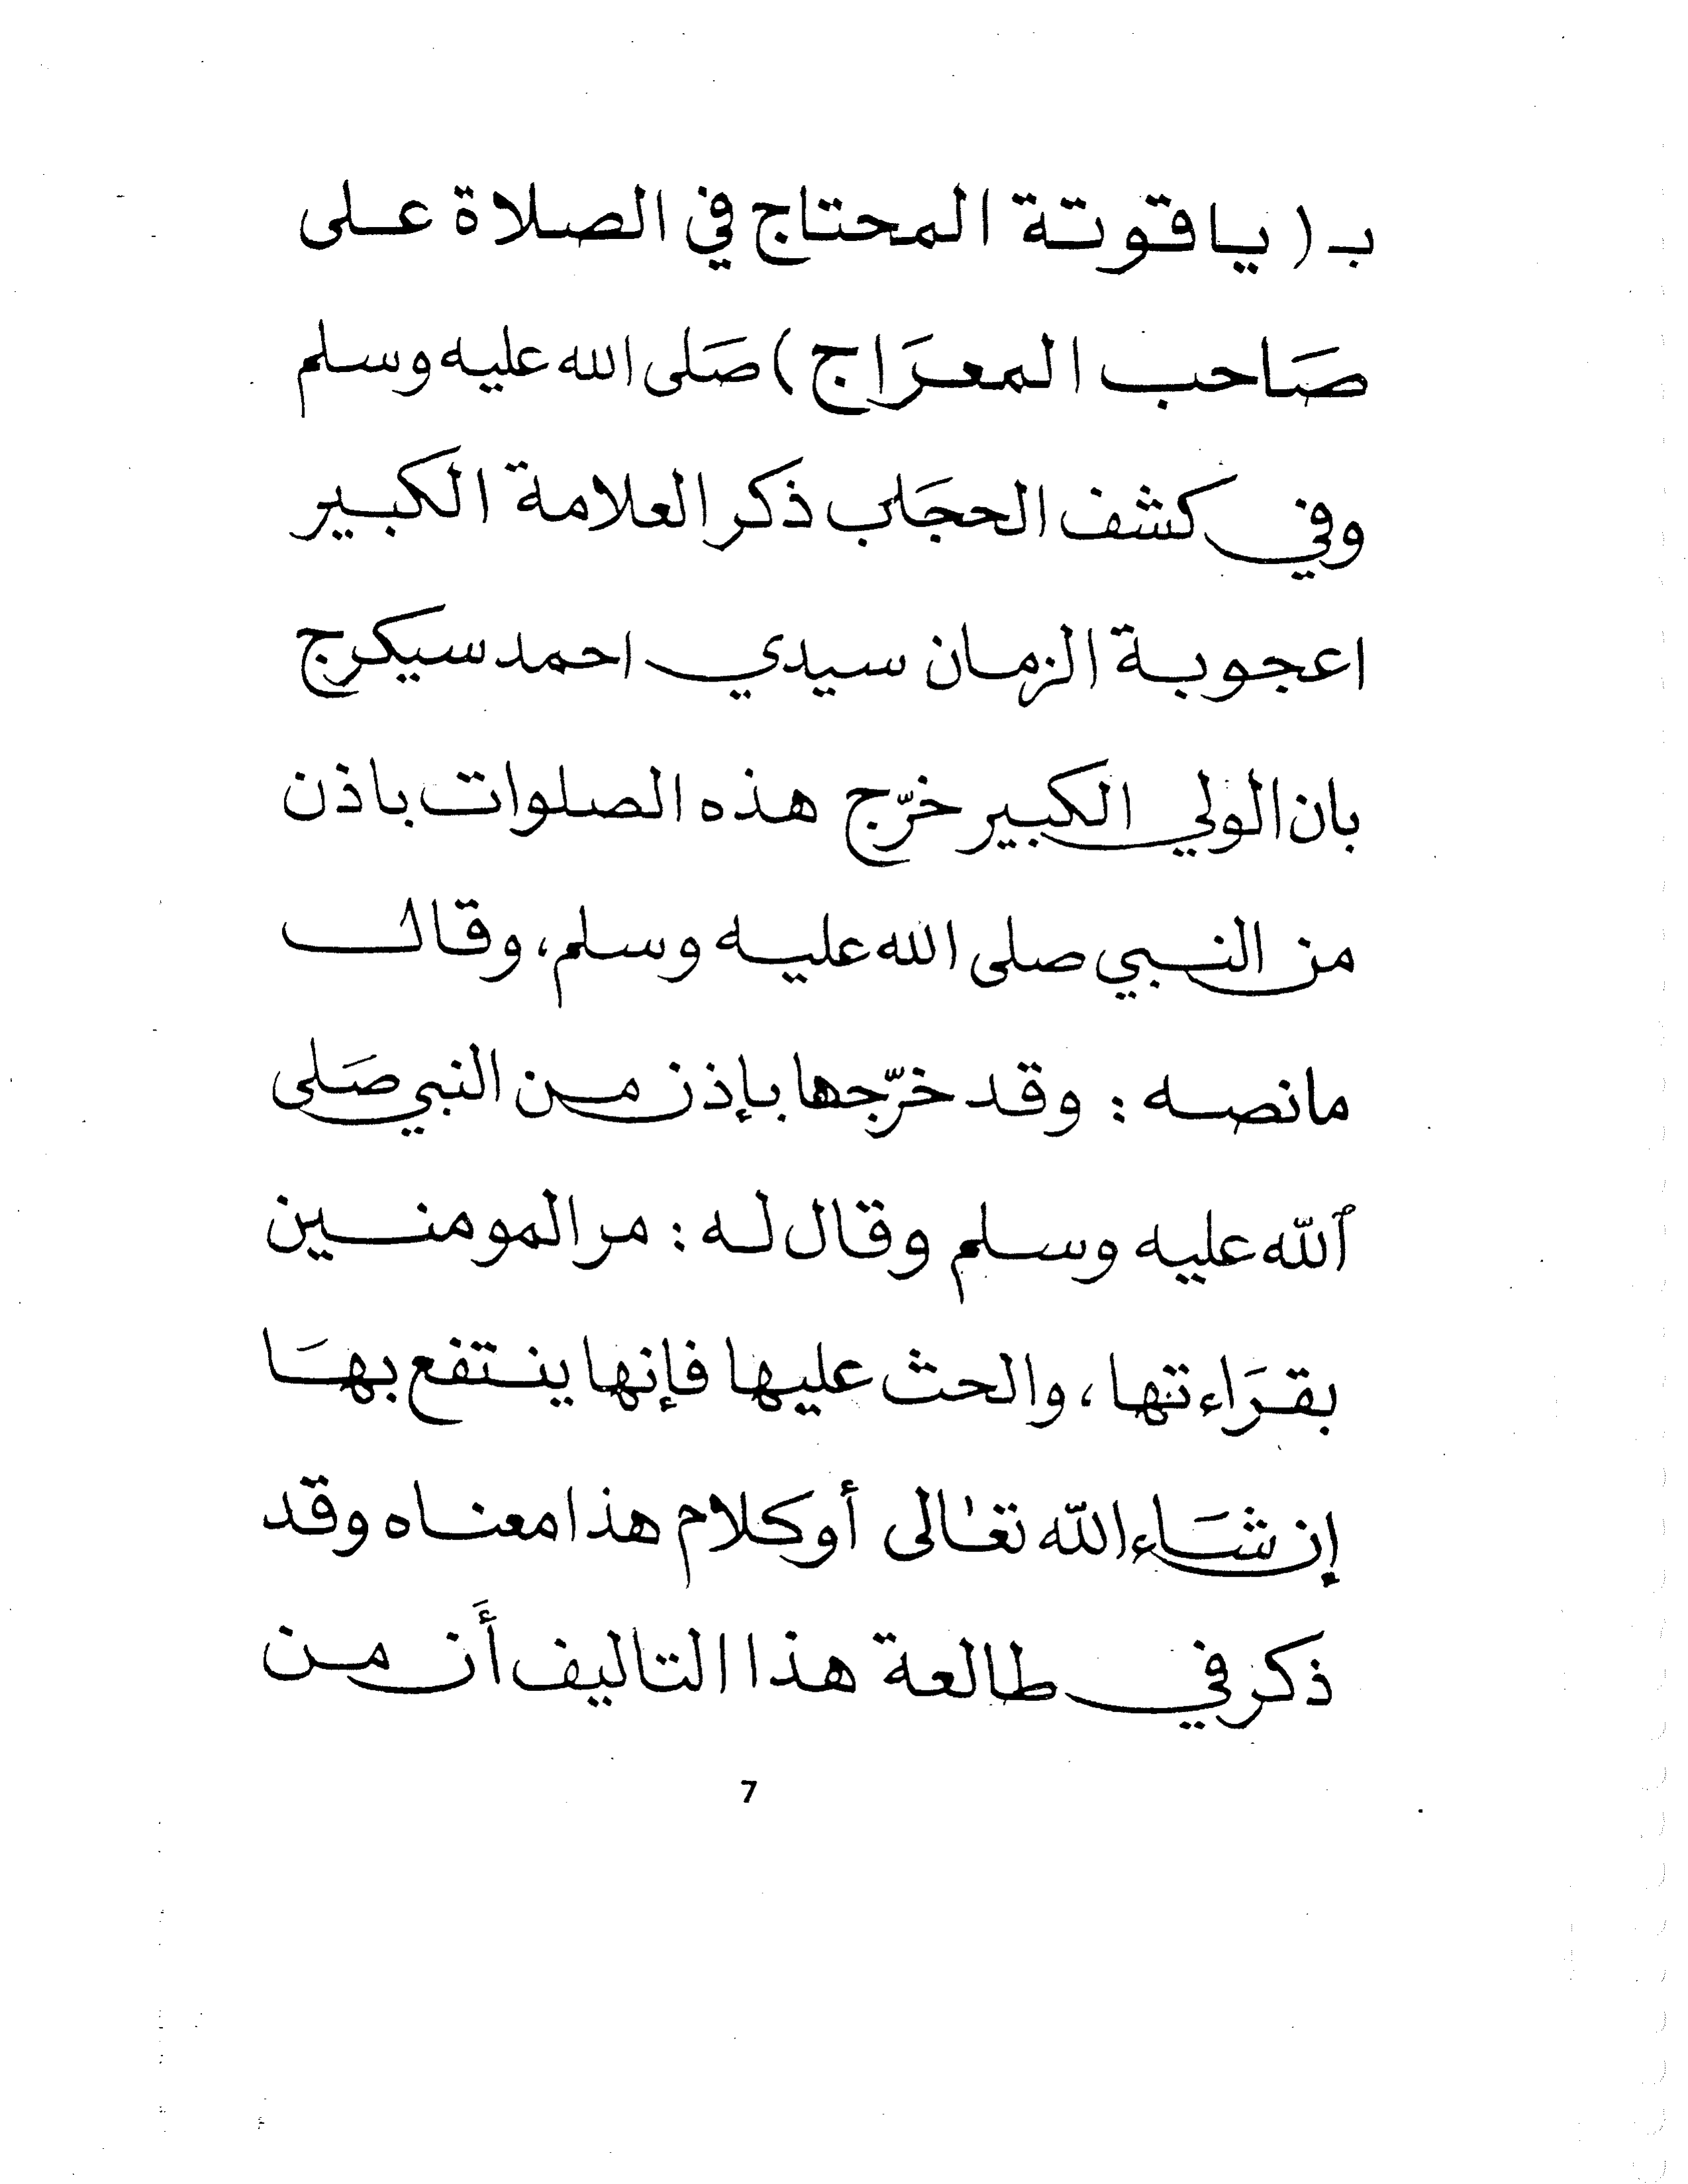 بـ (ياقوتة المحتاج في الصلاة على
صَاحب المعرَاج) صَلى الله عليه وسلم
وفي كشف الحجَاب ذكر العلامة الكبير
اعجوبة الزمان سيدي احمد سيكرج
بان الولي الكبير خرّج هذه الصلوات باذن
من النبي صلى الله عليه وسلم، وقال
مانصه : وقد خرّجها بإذن من النبي صَلى
ٱللّه عليه وسلم وقال له : مر المومنين
بقرَاءتها، والحث عليها فإنها ينتفع بهَا
إن شَاء اللّه تعٰالى أو كلام هذا معناه وقد
ذكر في طالعة هذا التاليف أَن من
7